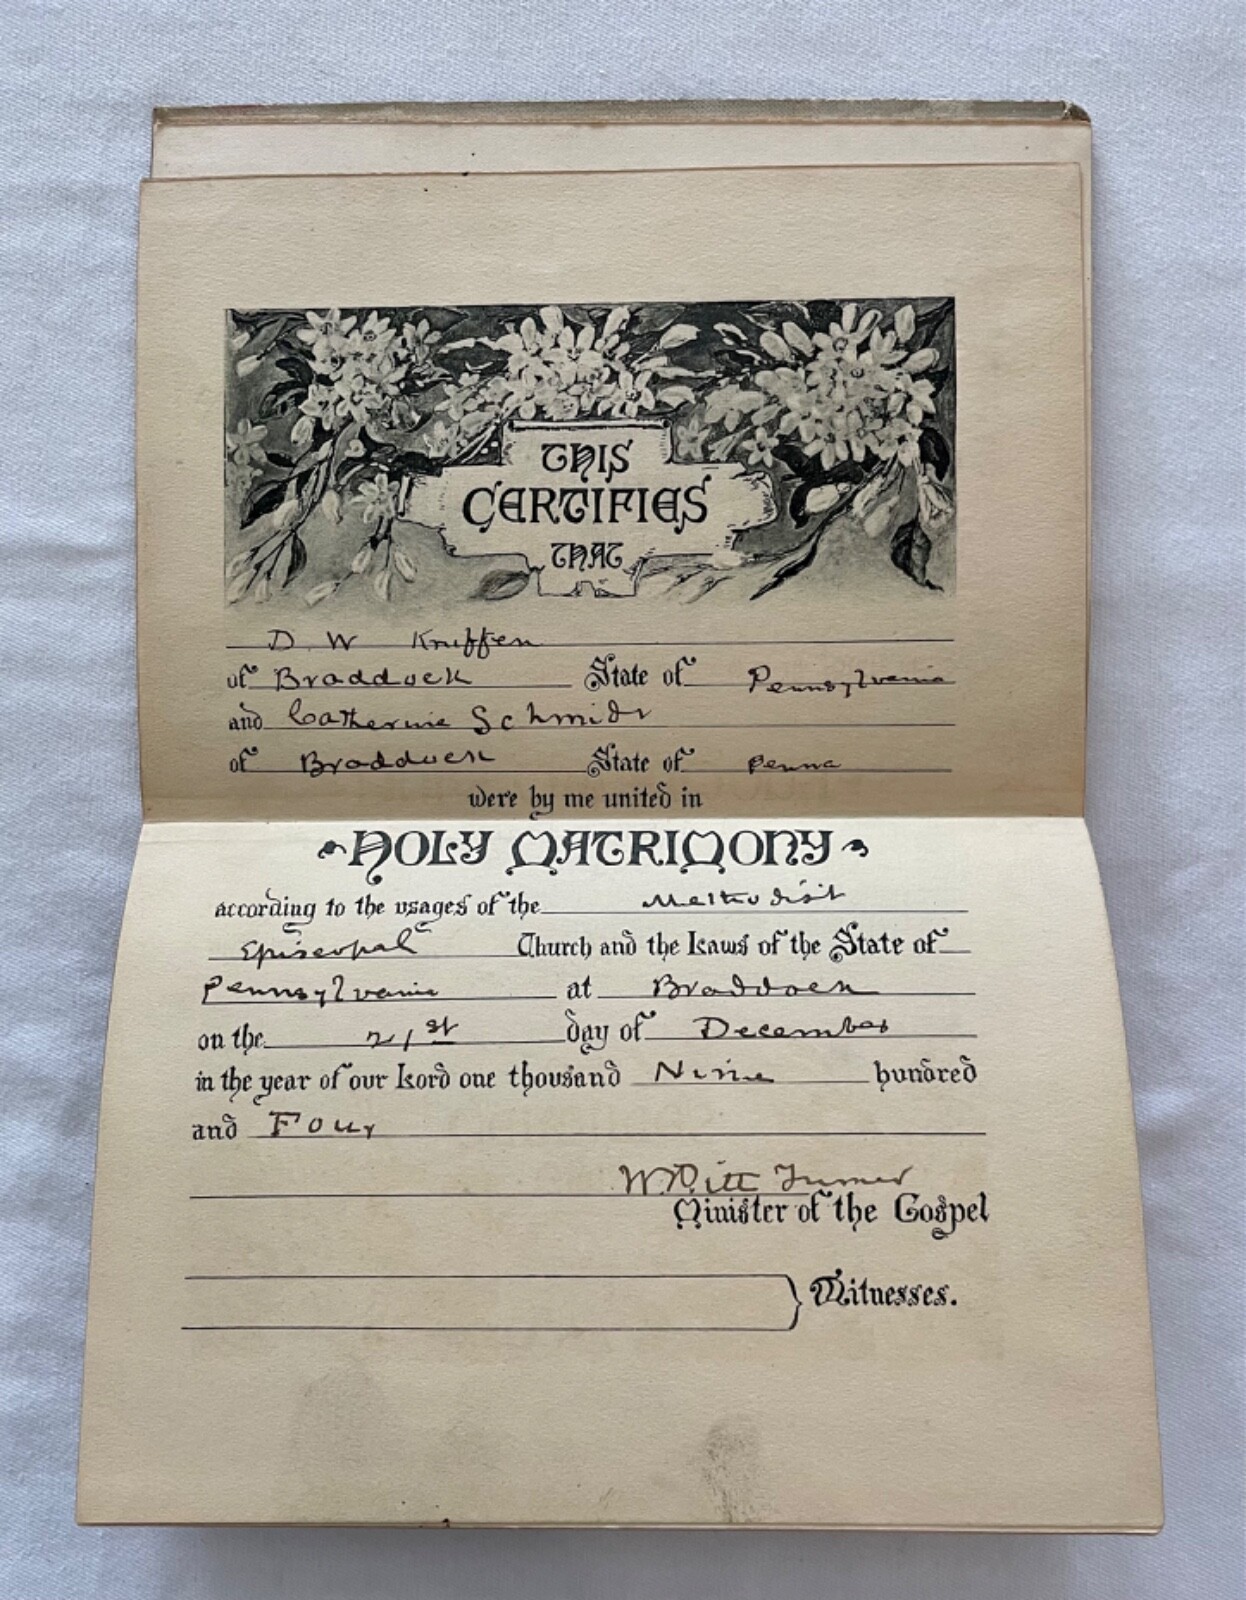 THIS
CERTIFIES
THAT
D. W Kruffen
of Braddock State of Pennsylvania
and Catherine Schmidt
of Braddock State of Penna
were by me united in
HOLY MATRIMONY
according to the usages of the Methodist
Episcopal Church and the Laws of the State of
Pennsylvania at Braddock
on the 21st day of December
in the year of our Lord one thousand Nine hundred
and Four
W. Pitt Turner
Minister of the Gospel
Witnesses.